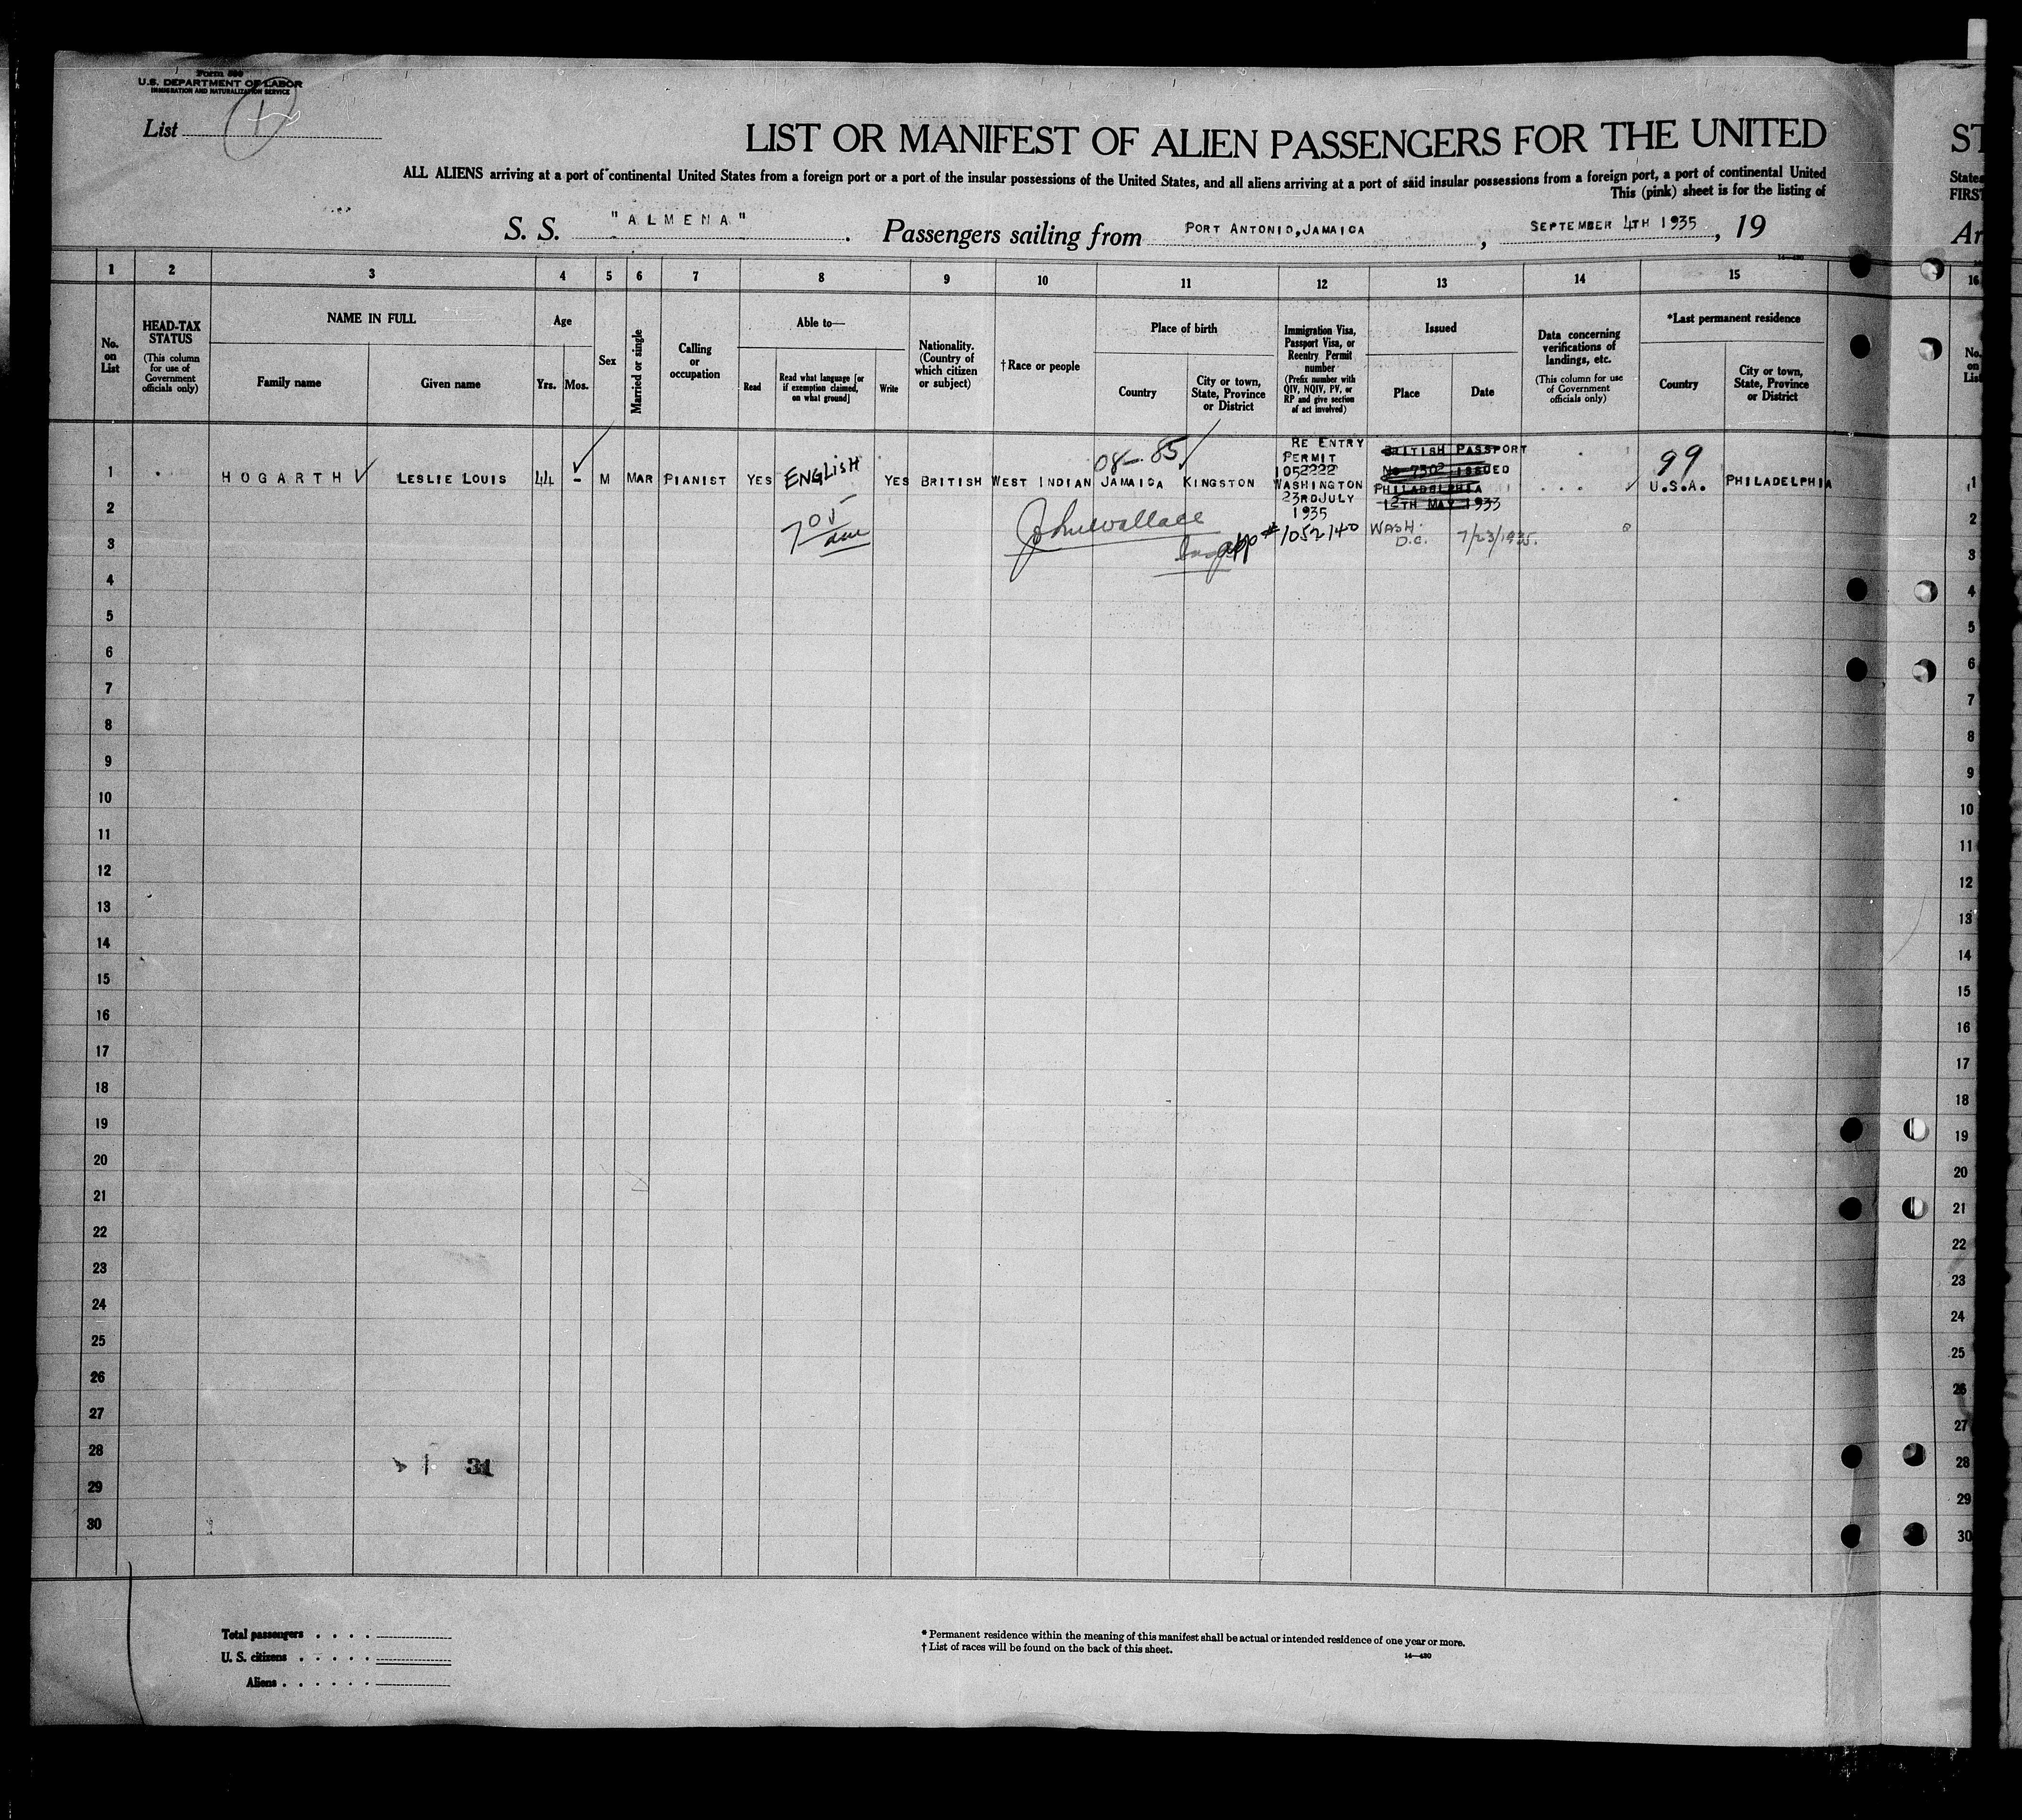 Form 500
U.S. DEPARTMENT OF LABOR
IMMIGRATION AND NATURALIZATION SERVICE
List 1
LIST OR MANIFEST OF ALIEN PASSENGERS FOR THE UNITED ST
ALL ALIENS arriving at a port of continental United States from a foreign port or a port of the insular possessions of the United States, and all aliens arriving at a port of said insular possessions from a foreign port, a port of continental United States
This (pink) sheet is for the listing of FIRST
S. S. "ALMENA". Passengers sailing from PORT ANTONIO, JAMAICA, SEPTEMBER 4TH 1935, 19 Ar
1 2 3 4 5 6 7 8 9 10 11 12 13 14 15 16
No. on List
HEAD-TAX STATUS
(This column for use of Government officials only)
NAME IN FULL
Family name
Given name
Age
Yrs.
Mos.
Sex
Married or single
Calling or occupation
Able to—
Read
Read what language [or if exemption claimed, on what ground]
Write
Nationality. (Country of which citizen or subject)
†Race or people
Place of birth
Country
City or town, State, Province or District
Immigration Visa, Passport Visa, or Reentry Permit number
(Prefix number with QIV, NQIV, PV, or RP and give section of act involved)
Issued
Place
Date
Data concerning verifications of landings, etc.
(This column for use of Government officials only)
*Last permanent residence
Country
City or town, State, Province or District
No. on List
1 HOGARTH LESLIE LOUIS 44 - M MAR PIANIST YES ENGLISH YES BRITISH WEST INDIAN JAMAICA KINGSTON
08-85
RE ENTRY
PERMIT
1052222
WASHINGTON
23RD JULY
1935
BRITISH PASSPORT
No 7502 ISSUED
PHILADELPHIA
12TH MAY 1933
99
U.S.A. PHILADELPHIA 1
7 05 am
John Wallace
Insp
app #1052140 WASH. D.C. 7/23/1935.
2 2
3 3
4 4
5 5
6 6
7 7
8 8
9 9
10 10
11 11
12 12
13 13
14 14
15 15
16 16
17 17
18 18
19 19
20 20
21 21
22 22
23 23
24 24
25 25
26 26
27 27
28 28
31
29 29
30 30
Total passengers . . . .
U. S. citizens . . . . .
Aliens . . . . . .
* Permanent residence within the meaning of this manifest shall be actual or intended residence of one year or more.
† List of races will be found on the back of this sheet.
14—430